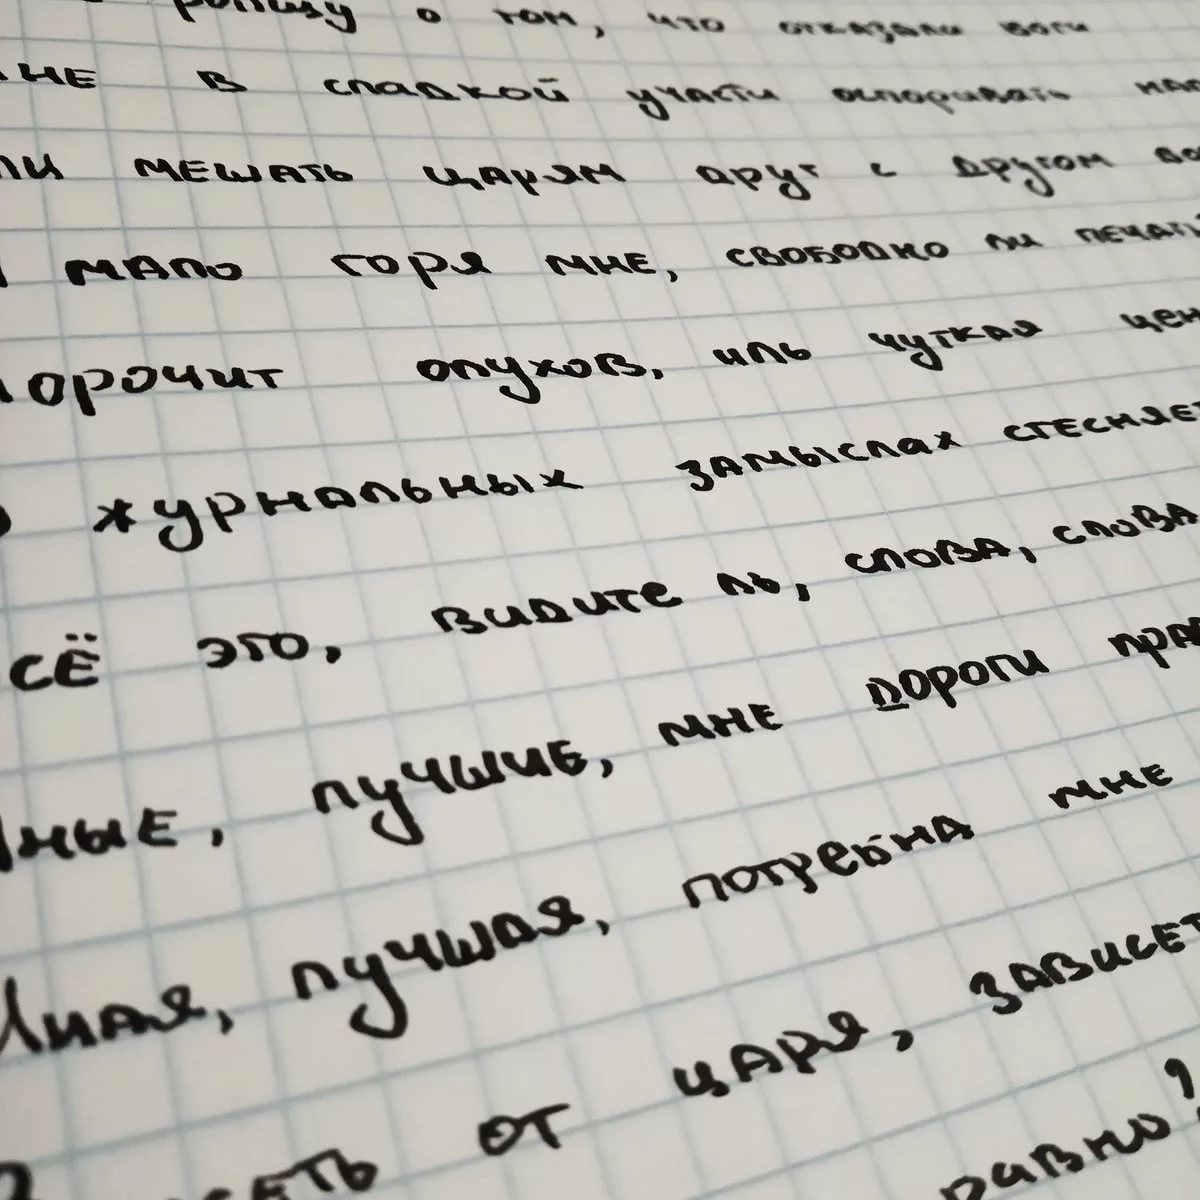 ропщу о том, что отказали боги
мне в сладкой участи оспоривать нал
ли мешать царям друг с другом вое
мало горя мне, свободно ли печать
морочит олухов, иль чуткая цен
журнальных замыслах стесняет
всё это, видите ль, слова, слова
Иные, лучшие, мне дороги прав
Иная, лучшая, потребна мне
от царя, зависет
равно?